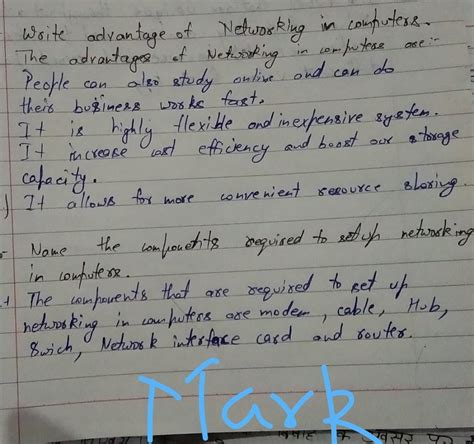 Write advantage of Networking in computers.
The advantages of Networking in computers are:-
People can also study online and can do
their business works fast.
It is highly flexible and inexpensive system.
It increase cost efficiency and boost our storage
capacity.
) It allows for more convenient resource sharing
Name the components required to setup networking
in computers.
The components that are required to set up
networking in computers are modem, cable, Hub,
Swich, Network interface card and router.
Mark